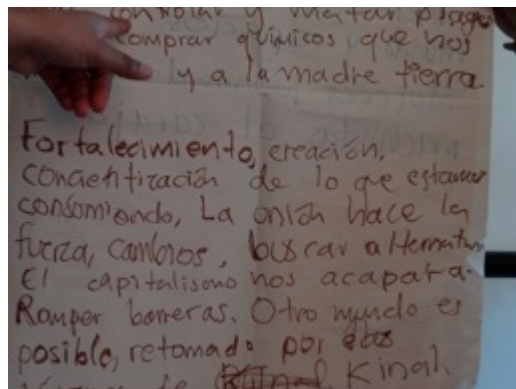 controlar y matar plagas
comprar químicos que nos
y a la madre tierra
Fortalecimiento, creación,
concientización de lo que estamos
consomiendo, La unión hace la
fuerza, cambios, buscar alternativas
El capitalismo nos acapara.
Romper barreras. Otro mundo es
posible, retomado por eos
de Kinal.